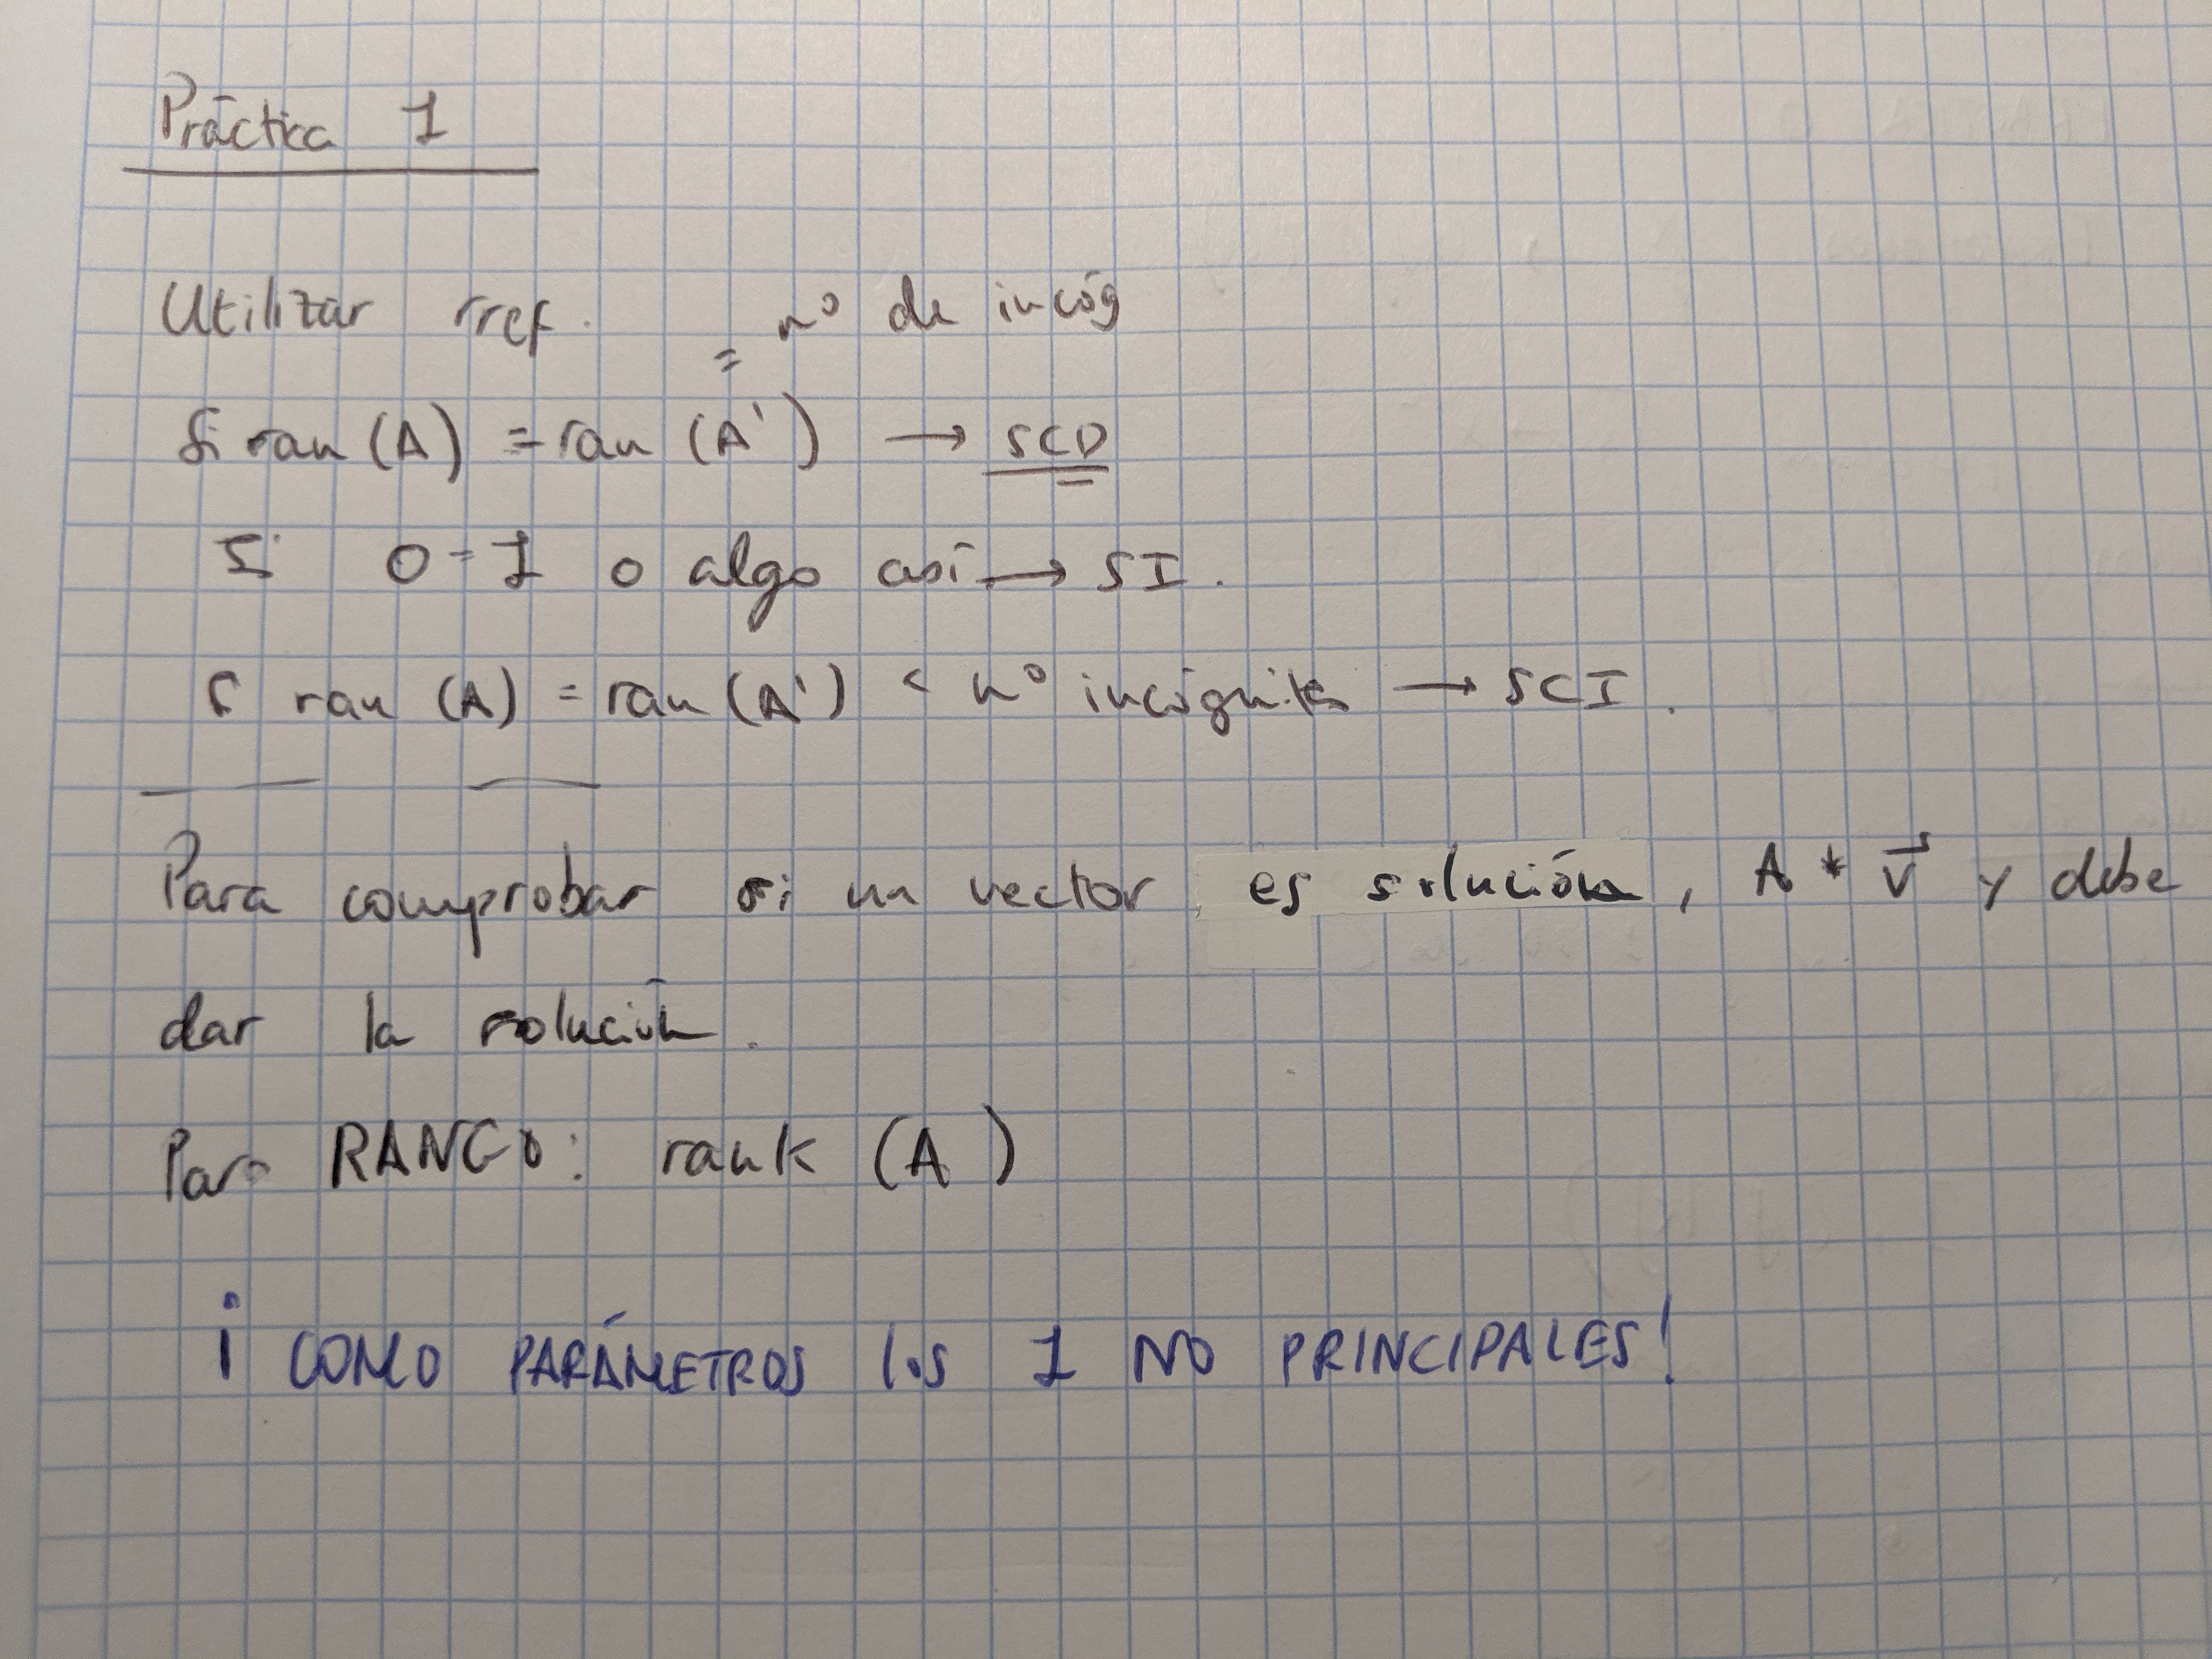 Práctica 1
Utilizar rref.
= nº de incóg
Si ran (A) = ran (A') → SCD
Si 0=1 o algo así → SI.
Si ran (A) = ran (A') < nº incógnitas → SCI.
Para comprobar si un vector es solución, A * v⃗ y debe
dar la solución.
Para RANGO: rank (A)
¡ COMO PARÁMETROS los 1 NO PRINCIPALES!